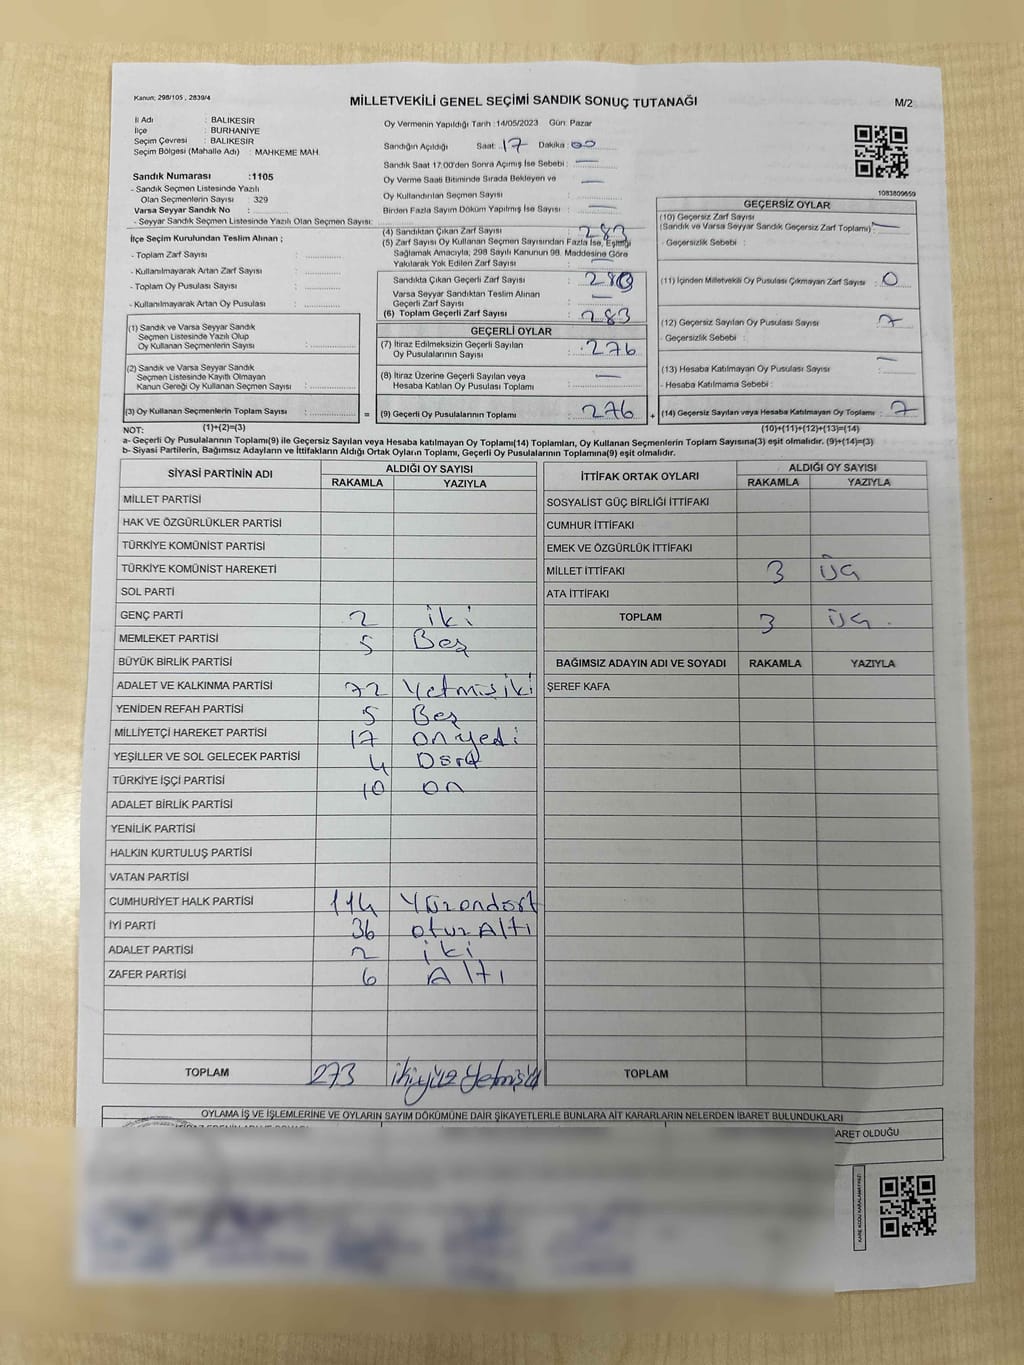 Kanun; 298/105 , 2839/4
MİLLETVEKİLİ GENEL SEÇİMİ SANDIK SONUÇ TUTANAĞI
M/2
İl Adı : BALIKESİR
İlçe : BURHANİYE
Seçim Çevresi : BALIKESİR
Seçim Bölgesi (Mahalle Adı) : MAHKEME MAH.
Sandık Numarası :1105
- Sandık Seçmen Listesinde Yazılı
Olan Seçmenlerin Sayısı : 329
Varsa Seyyar Sandık No :
- Seyyar Sandık Seçmen Listesinde Yazılı Olan Seçmen Sayısı:
İlçe Seçim Kurulundan Teslim Alınan ;
- Toplam Zarf Sayısı :
- Kullanılmayarak Artan Zarf Sayısı :
- Toplam Oy Pusulası Sayısı :
- Kullanılmayarak Artan Oy Pusulası :
(1) Sandık ve Varsa Seyyar Sandık
Seçmen Listesinde Yazılı Olup
Oy Kullanan Seçmenlerin Sayısı :
(2) Sandık ve Varsa Seyyar Sandık
Seçmen Listesinde Kayıtlı Olmayan
Kanun Gereği Oy Kullanan Seçmen Sayısı :
(3) Oy Kullanan Seçmenlerin Toplam Sayısı :
Oy Vermenin Yapıldığı Tarih :14/05/2023 Gün: Pazar
Sandığın Açıldığı Saat: 17 Dakika: 00
Sandık Saat 17:00'den Sonra Açımış İse Sebebi : —
Oy Verme Saati Bitiminde Sırada Bekleyen ve
Oy Kullandırılan Seçmen Sayısı : —
Birden Fazla Sayım Döküm Yapılmış İse Sayısı : —
(4) Sandıktan Çıkan Zarf Sayısı : 283
(5) Zarf Sayısı Oy Kullanan Seçmen Sayısından Fazla İse, Eşitliği
Sağlamak Amacıyla, 298 Sayılı Kanunun 98. Maddesine Göre
Yakılarak Yok Edilen Zarf Sayısı : —
Sandıkta Çıkan Geçerli Zarf Sayısı : 283
Varsa Seyyar Sandıktan Teslim Alınan
Geçerli Zarf Sayısı : —
(6) Toplam Geçerli Zarf Sayısı : 283
GEÇERLİ OYLAR
(7) İtiraz Edilmeksizin Geçerli Sayılan
Oy Pusulalarının Sayısı : 276
(8) İtiraz Üzerine Geçerli Sayılan veya
Hesaba Katılan Oy Pusulası Toplamı : —
= (9) Geçerli Oy Pusulalarının Toplamı : 276
1083809659
GEÇERSİZ OYLAR
(10) Geçersiz Zarf Sayısı
(Sandık ve Varsa Seyyar Sandık Geçersiz Zarf Toplamı) : —
- Geçersizlik Sebebi :
(11) İçinden Milletvekili Oy Pusulası Çıkmayan Zarf Sayısı : 0
(12) Geçersiz Sayılan Oy Pusulası Sayısı : 7
- Geçersizlik Sebebi :
(13) Hesaba Katılmayan Oy Pusulası Sayısı : —
- Hesaba Katılmama Sebebi :
+ (14) Geçersiz Sayılan veya Hesaba Katılmayan Oy Toplamı : 7
NOT: (1)+(2)=(3)
(10)+(11)+(12)+(13)=(14)
a- Geçerli Oy Pusulalarının Toplamı(9) ile Geçersiz Sayılan veya Hesaba katılmayan Oy Toplamı(14) Toplamları, Oy Kullanan Seçmenlerin Toplam Sayısına(3) eşit olmalıdır. (9)+(14)=(3)
b- Siyasi Partilerin, Bağımsız Adayların ve İttifakların Aldığı Ortak Oyların Toplamı, Geçerli Oy Pusulalarının Toplamına(9) eşit olmalıdır.
SİYASİ PARTİNİN ADI ALDIĞI OY SAYISI
RAKAMLA YAZIYLA
MİLLET PARTİSİ
HAK VE ÖZGÜRLÜKLER PARTİSİ
TÜRKİYE KOMÜNİST PARTİSİ
TÜRKİYE KOMÜNİST HAREKETİ
SOL PARTİ
GENÇ PARTİ 2 iki
MEMLEKET PARTİSİ 5 Beş
BÜYÜK BİRLİK PARTİSİ
ADALET VE KALKINMA PARTİSİ 72 Yetmişiki
YENİDEN REFAH PARTİSİ 5 Beş
MİLLİYETÇİ HAREKET PARTİSİ 17 onyedi
YEŞİLLER VE SOL GELECEK PARTİSİ 4 Dört
TÜRKİYE İŞÇİ PARTİSİ 10 on
ADALET BİRLİK PARTİSİ
YENİLİK PARTİSİ
HALKIN KURTULUŞ PARTİSİ
VATAN PARTİSİ
CUMHURİYET HALK PARTİSİ 114 Yüzondört
İYİ PARTİ 36 otuzAltı
ADALET PARTİSİ 2 iki
ZAFER PARTİSİ 6 Altı
TOPLAM 273
İTTİFAK ORTAK OYLARI ALDIĞI OY SAYISI
RAKAMLA YAZIYLA
SOSYALİST GÜÇ BİRLİĞİ İTTİFAKI
CUMHUR İTTİFAKI
EMEK VE ÖZGÜRLÜK İTTİFAKI
MİLLET İTTİFAKI 3 üç
ATA İTTİFAKI
TOPLAM 3 üç.
BAĞIMSIZ ADAYIN ADI VE SOYADI RAKAMLA YAZIYLA
ŞEREF KAFA
TOPLAM
OYLAMA İŞ VE İŞLEMLERİNE VE OYLARIN SAYIM DÖKÜMÜNE DAİR ŞİKAYETLERLE BUNLARA AİT KARARLARIN NELERDEN İBARET BULUNDUKLARI
BARET OLDUĞU